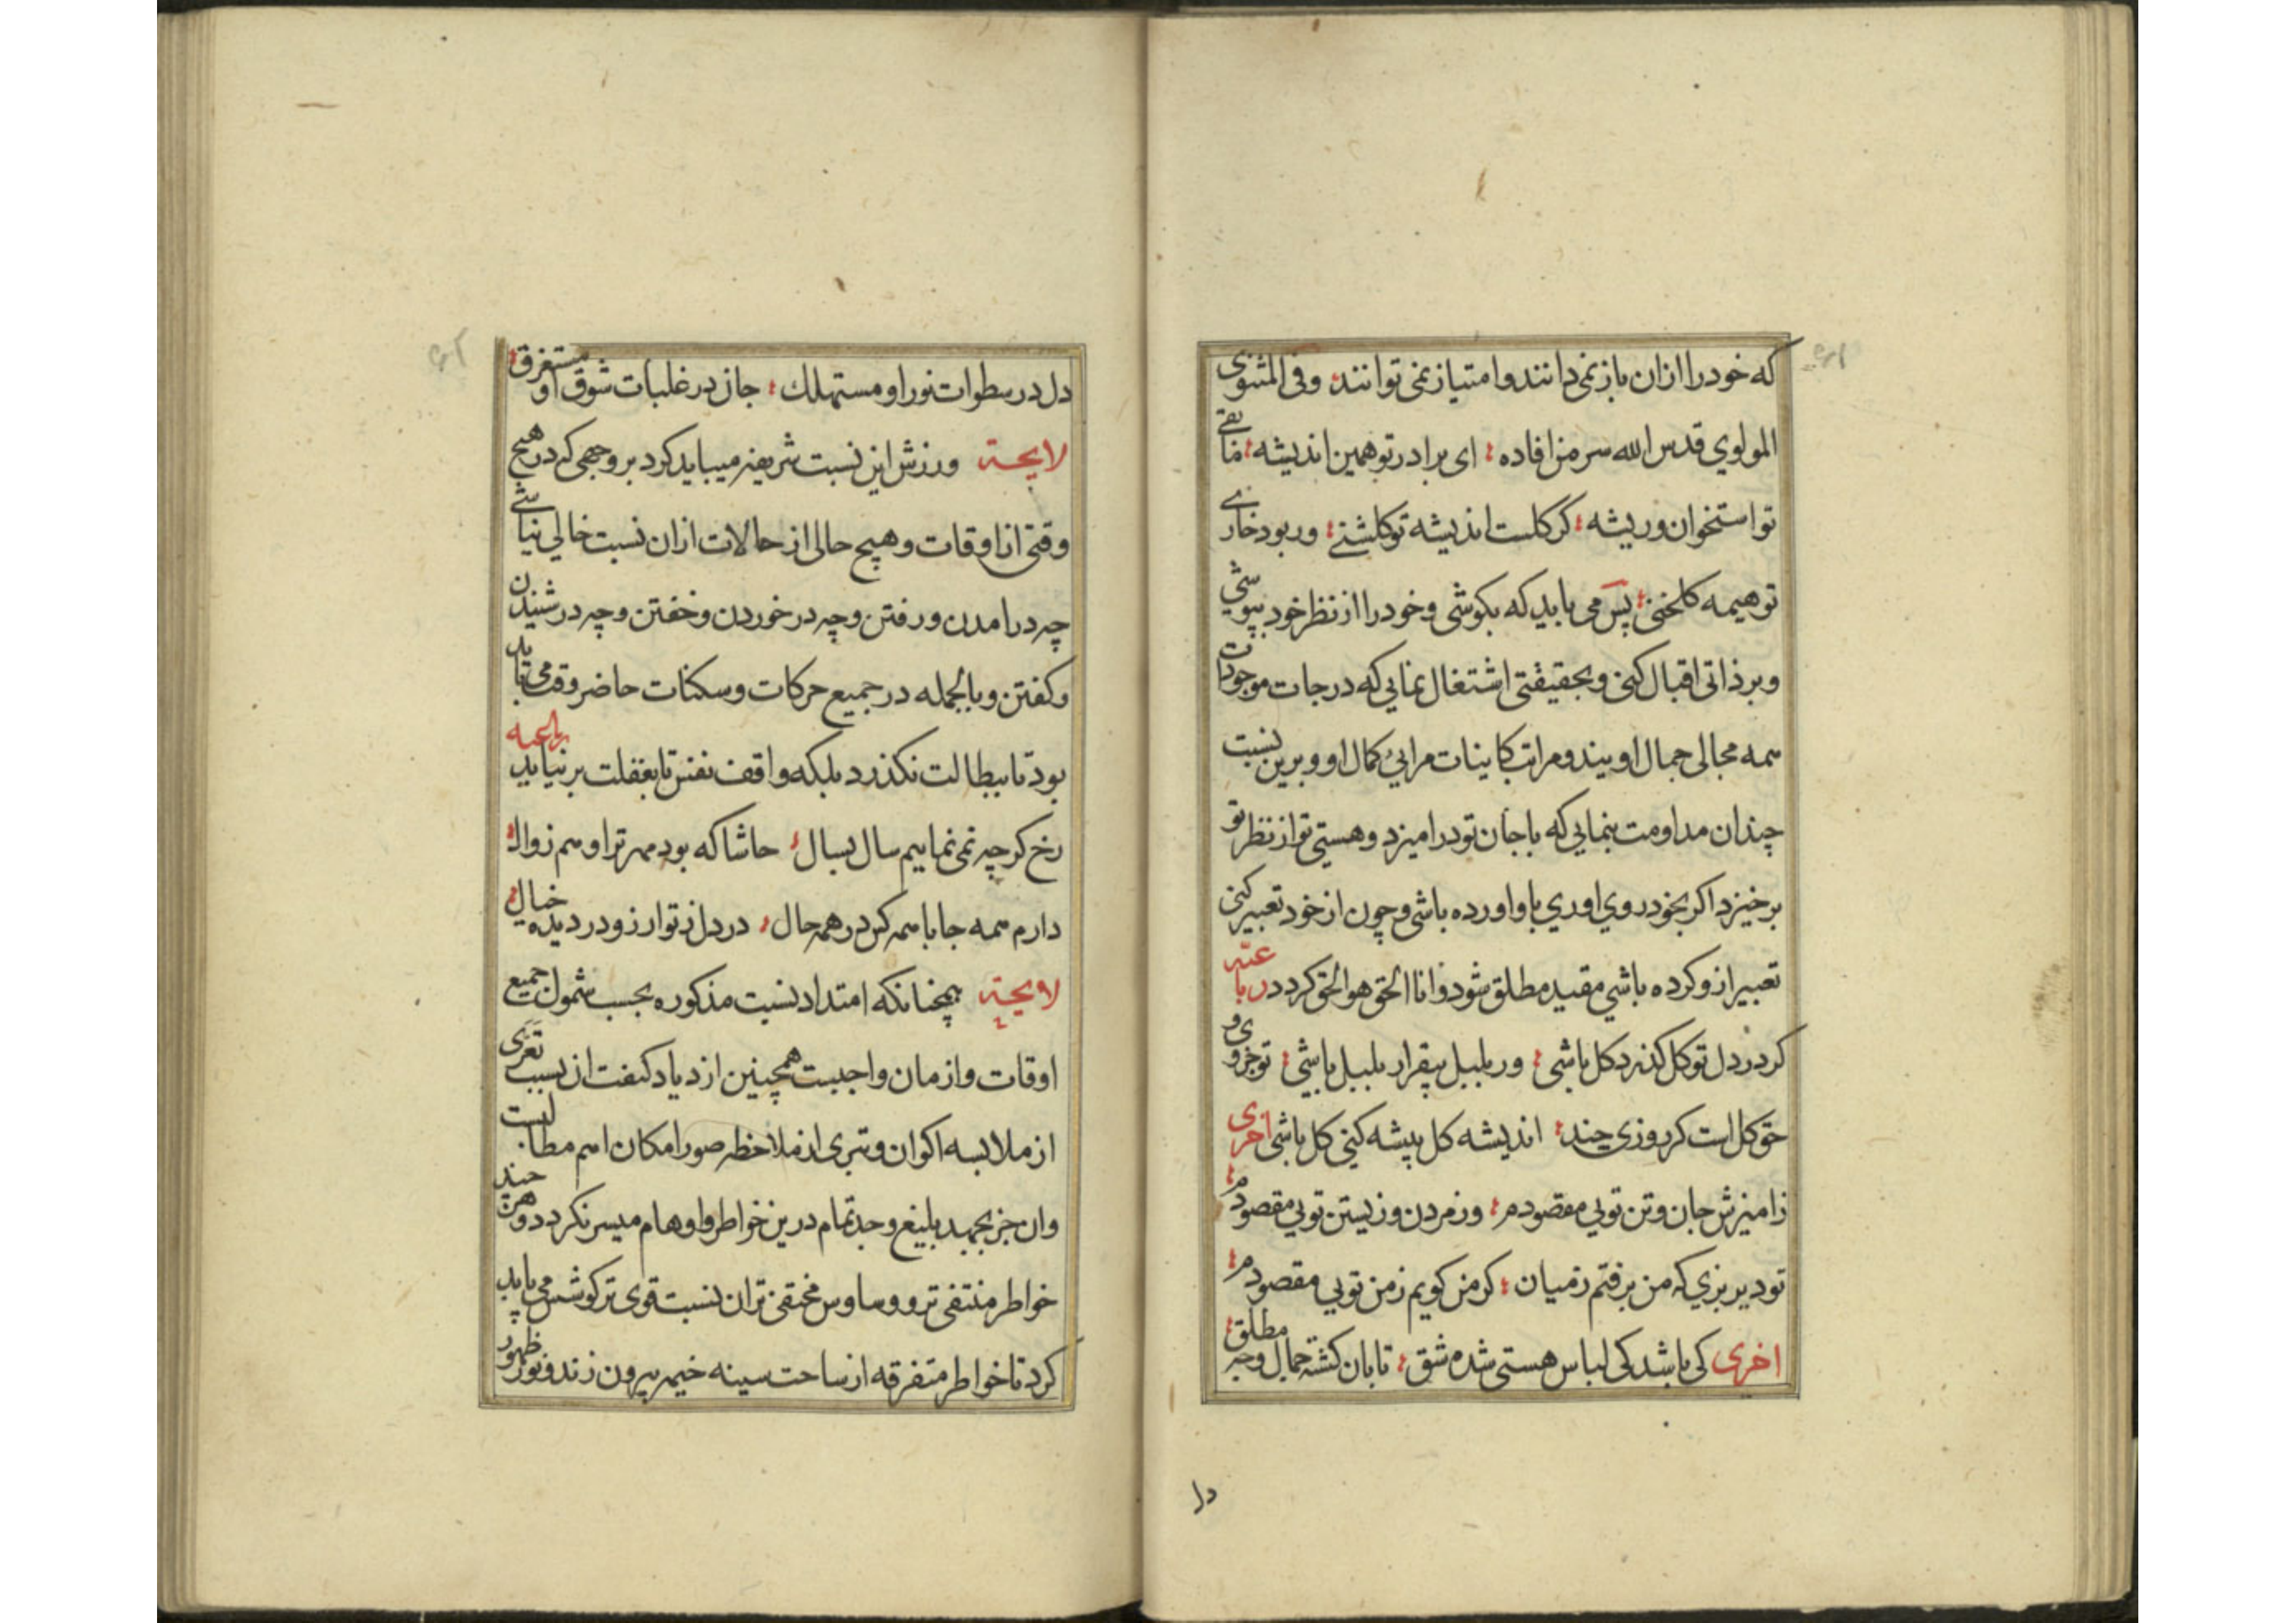 که خود را ازان باز نمی دانند و امتیاز نمی توانند وفی المثنوی
المولوي قدس الله سره من افاده ؛ ای برادر تو همین اندیشه ؛ ما بقی
تو استخوان و ریشه ؛ کر کلست اندیشه تو کلشنے ؛ ور بود خارے
تو هیمه کلخنی ؛ پس می باید که بکوشی و خود را از نظر خود بپوشي
و بر ذاتی اقبال کنی و بحقیقتی اشتغال نمایي که درجات موجودات
همه مجالی جمال او یند و مراتب کاینات مرایئ کمال او و برین نسبت
چندان مداومت بنمایي که با جان تو درامیزد و هستی تو از نظر تو
برخیزد اکر بخود روي اوري باو اورده باشی و چون از خود تعبیر کنی
تعبیر ازو کرده باشي مقید مطلق شود و انا الحق هو الحق کردد رباعیه
کر در دل تو کل کذرد کل باشی ؛ ور بلبل بیقرار بلبل باشي ؛ تو جزوی و
حق کل است کر روزی چند ؛ اندیشه کل پیشه کنی کل باشی اخری
زامیزش جان و تن تویي مقصودم ؛ وز مردن و زیستن تویي مقصودم ؛
تو دیر بزي که من برفتم زمیان ؛ کر من کویم زمن تویي مقصودم ؛
اخری کی باشد کی لباس هستی شده شق ؛ تابان کشته جمال وجه مطلق ؛
دل
دل در سطوات نور او مستهلك ؛ جان در غلبات شوق او مستغرق ؛
لایحة ورزش این نسبت شریفه میباید کرد بر وجهی که در هیچ
وقتی از اوقات و هیچ حالی از حالات ازان نسبت خالي نباشے
چه در امدن و رفتن و چه در خوردن و خفتن و چه در شنیدن
و کفتن و بالجمله در جمیع حرکات و سکنات حاضر وقت می باید
بود تا ببطالت نکذرد بلکه واقف نفس تا بغفلت بر نیاید رباعیه
رخ کر چه نمی نماییم سال بسال ؛ حاشا که بود مهر ترا وهم زوال ؛
دارم همه جا با همه کر در همه حال ؛ در دل ز تو ارزو در دیده خیال ؛
لایحة همچنانکه امتداد نسبت مذکوره بحسب شمول جمیع
اوقات و ازمان واجبست همچنین ازدیاد کیفت ان بسبب تعری
از ملابسه اکوان و تبری از ملاحظه صور امکان اهم مطالبست
وان جز بجهد بلیغ و جد تمام در ین خواطر و اوهام میسر نکردد و هر چند
خواطر منتفی تر و وساوس مختفی تر ان نسبت قوی تر کوشش می باید
کرد تا خواطر متفرقه از ساحت سینه خیمه بیرون زند و نور ظهور